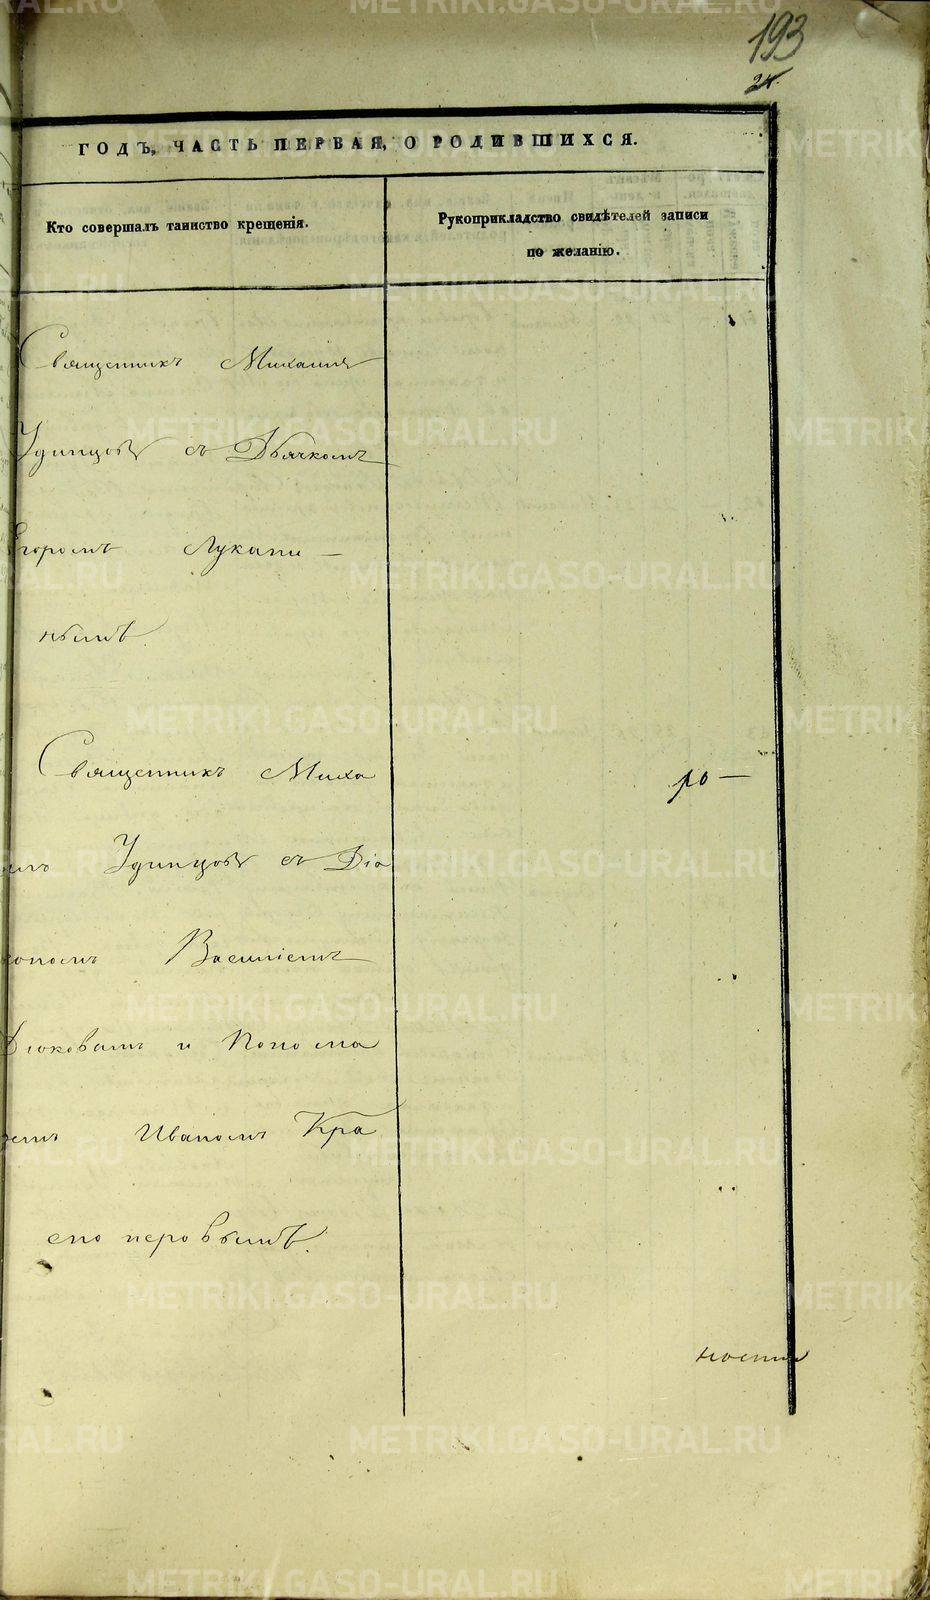 193
24.
ГОДЪ, ЧАСТЬ ПЕРВАЯ, О РОДИВШИХСЯ.
Кто совершалъ таинство крещенія.
Рукоприкладство свидѣтелей записи
по желанію.
Священникъ Михаилъ
Удинцовъ съ Дьячкомъ
Егоромъ Лукани–
нымъ.
Священникъ Миха
илъ Удинцовъ съ Діа
кономъ Василіемъ
Дюковымъ и Понома
ремъ Иваномъ Кра
сноперовымъ.
ро –
METRIKI.GASO-URAL.RU